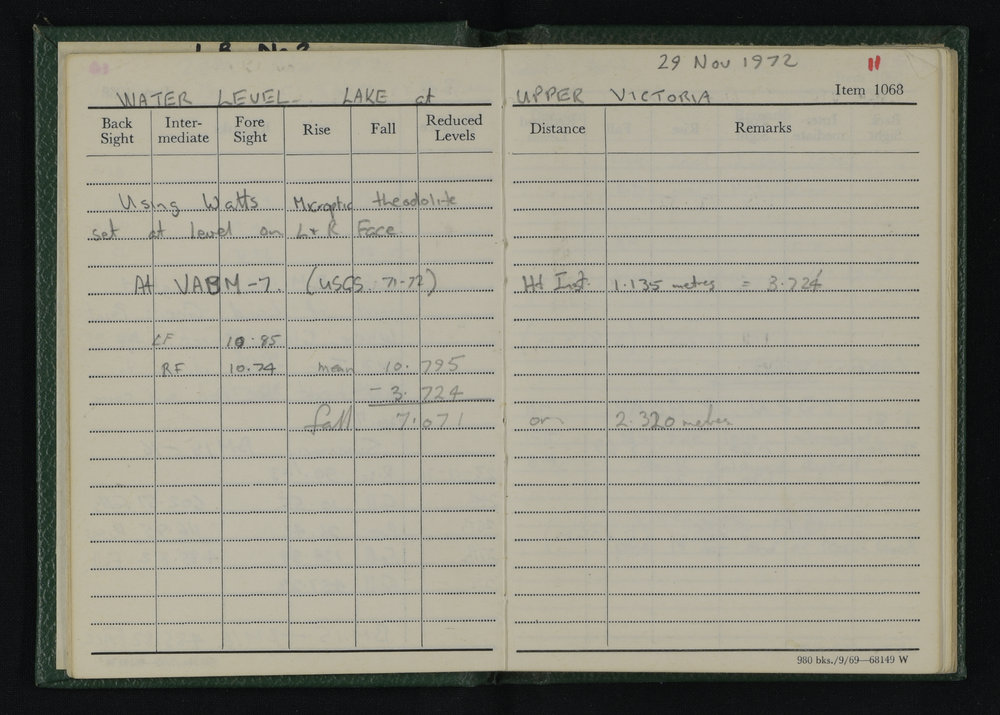 29 Nov 1972
11
WATER LEVEL - LAKE at UPPER VICTORIA
Item 1068
Back Sight Inter-mediate Fore Sight Rise Fall Reduced Levels Distance Remarks
Using Watts Microptic theodolite
set at level on L & R Face
At VABM-7. (USGS 71-72) Ht Inst. 1.135 metres = 3.724
LF 10.85
RF 10.74 mean 10.795
- 3.724
fall 7.071 or 2.320 metres
980 bks./9/69—68149 W